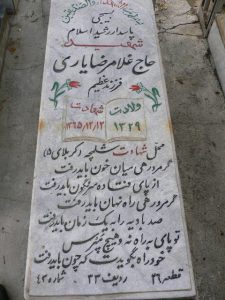 پاسدار رشید اسلام
شهید
حاج غلامرضا یاری
فرزند عظیم
ولادت شهادت
۱۳۲۹ ۱۳۶۵/۱۲/۱۲
محل شهادت شلمچه (کربلای ۵)
گر مرد رهی میان خون باید رفت
از پای فتاده سرنگون باید رفت
گر مرد رهی راه نهان باید رفت
صد بادیه را به یک زمان باید رفت
تو پای به راه نه و هیچ مپرس
خود راه بگویدت که چون باید رفت
قطعه ۲۶ ردیف ۲۳ شماره ۴۲